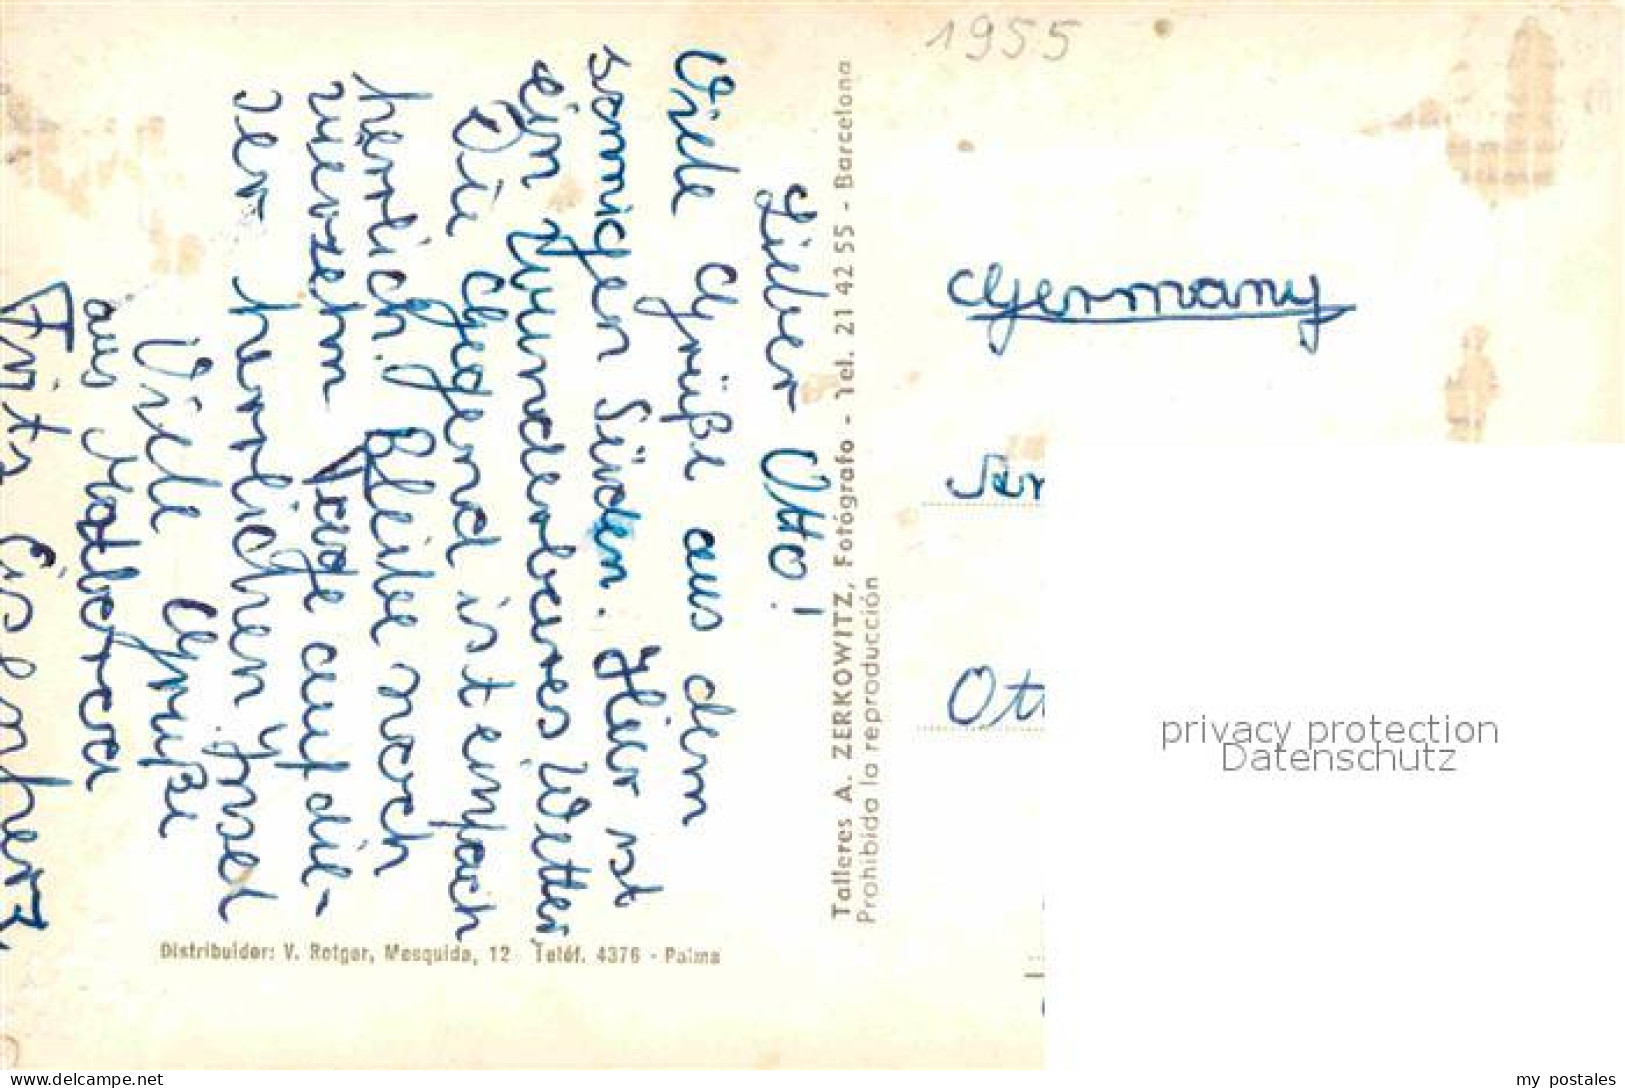 1955
Lieber Otto!
Viele Grüße aus dem
sonnigen Süden. Hier ist
ein wunderbares Wetter
Die Gegend ist einfach
herrlich. Bleibe noch
Tage auf die-
ser herrlichen Insel
Viele Grüße
aus Mallorca
Fritz
Talleres A. ZERKOWITZ, Fotógrafo - Tel. 21 42 55 - Barcelona
Prohibida la reproducción
Distribuidor: V. Rotger, Mesquida, 12 Teléf. 4376 - Palma
Germany
Ott
privacy protection
Datenschutz
delcampe.net
my_postales